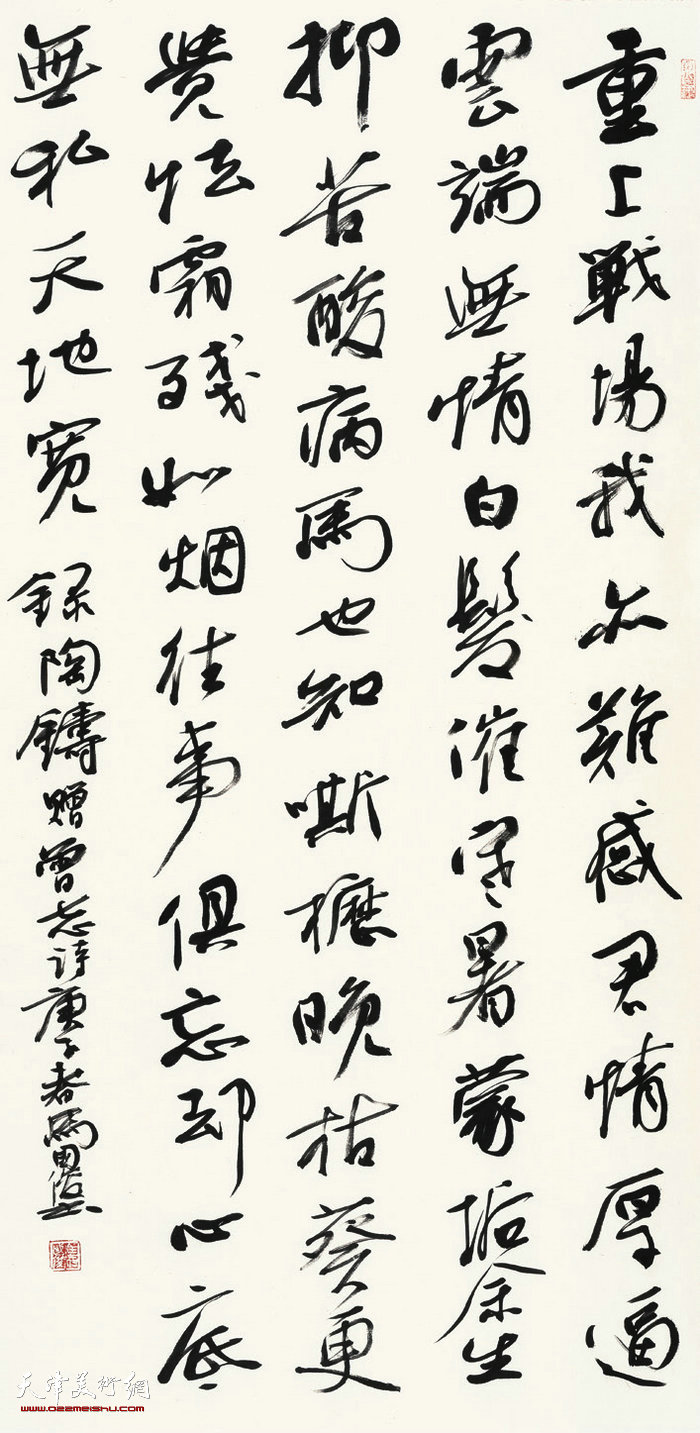 重上戰場我亦難感君情厚逼
雲端無情白髮催寒暑蒙垢余生
抑苦酸病馬也知嘶櫪晚枯葵更
覺怯霜殘如烟往事俱忘却心底
無私天地寬
録陶鑄贈曾志詩庚子春馬
天津美術網
www.022meishu.com